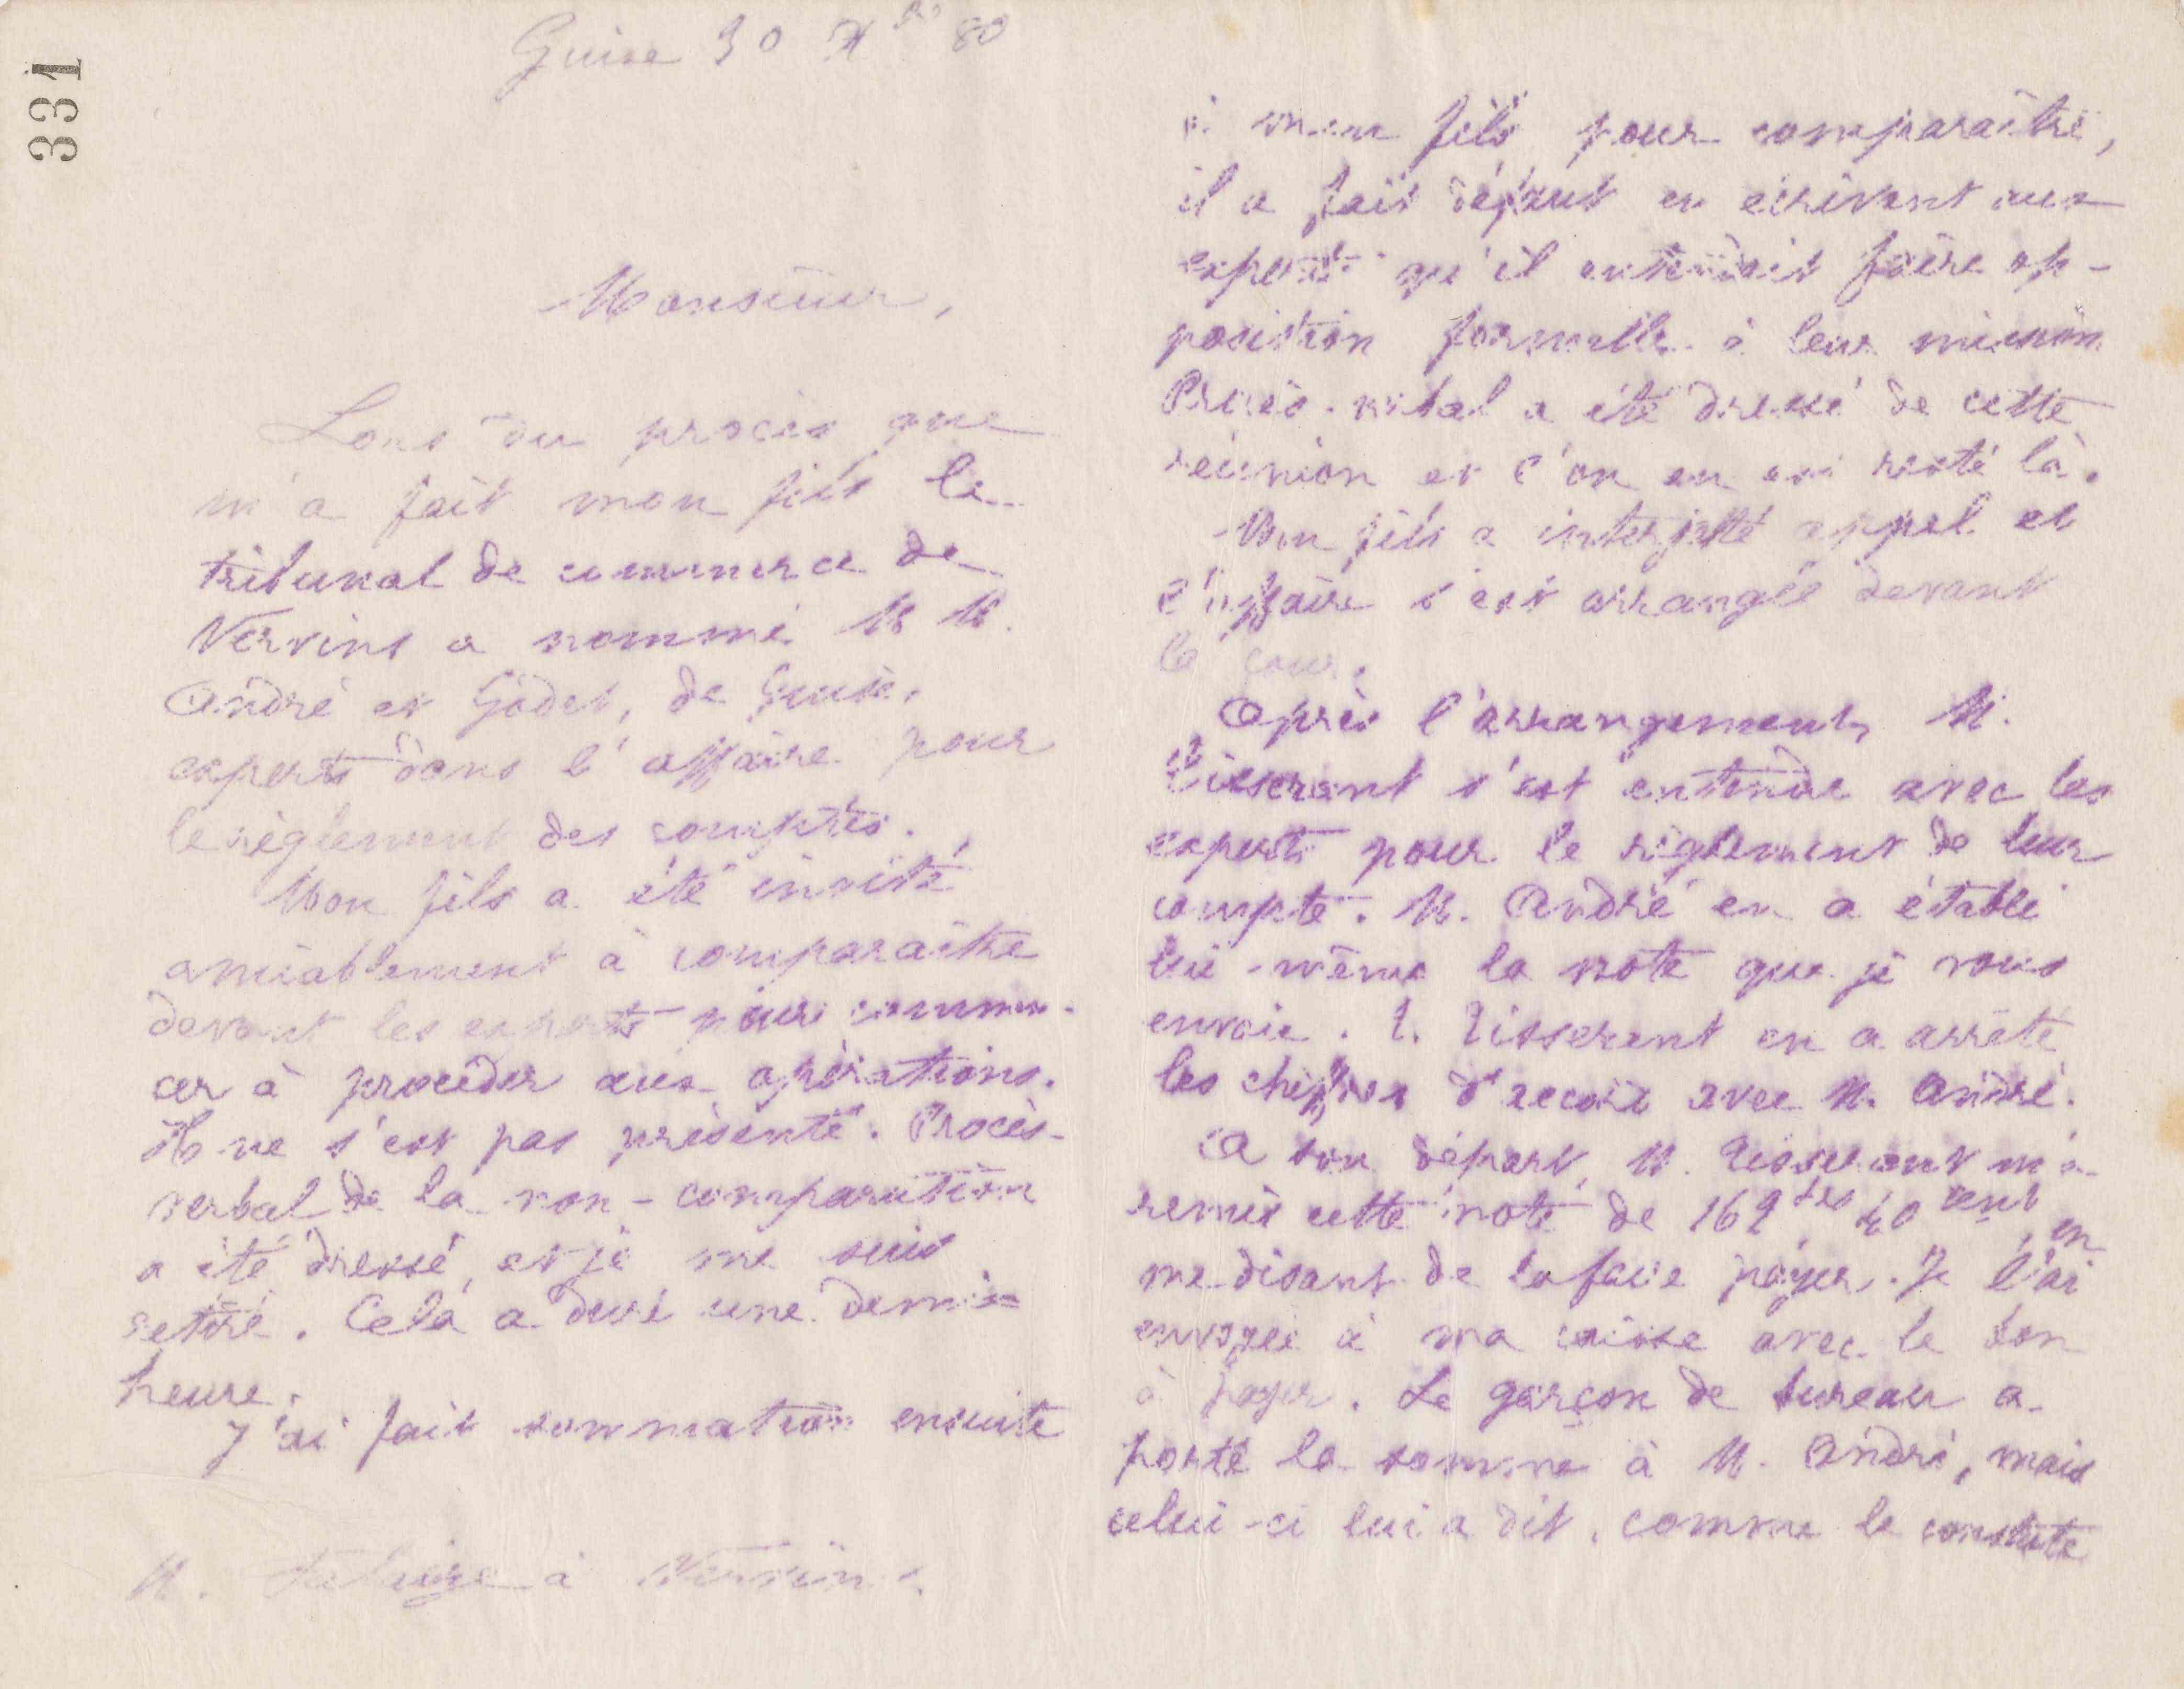 331
Guise 30 Xbre 80
Monsieur,
Lors du procès que
m'a fait mon fils le
tribunal de commerce de
Vervins a nommé MM.
André et Godet, de Guise,
experts dans l'affaire pour
le règlement des comptes.
Mon fils a été invité
amiablement à comparaître
devant les experts pour commen-
cer à procéder aux opérations.
Il ne s'est pas présenté. Procès-
verbal de la non-comparution
a été dressé, et je me suis
retiré. Cela a duré une demie
heure.
J'ai fait sommation ensuite
M. à Vervins.
à mon fils pour comparaître,
il a fait défaut en écrivant aux
experts qu'il entendait faire op-
position formelle à leur mission
Procès-verbal a été dressé de cette
réunion et l'on en est resté là.
Mon fils a interjeté appel et
l'affaire s'est arrangée devant
la cour.
Après l'arrangement, M.
Tisserant s'est entendu avec les
experts pour le règlement de leur
compte. M. André en a établi
lui-même la note que je vous
envoie. M. Tisserant en a arrêté
les chiffres d'accord avec M. André.
A son départ, M. Tisserant m'a
remis cette note de 162 frs 40 cent, en
me disant de la faire payer. Je l'ai
envoyée à ma caisse avec le bon
à payer. Le garçon de bureau a
porté la somme à M. André, mais
celui-ci lui a dit, comme le constate